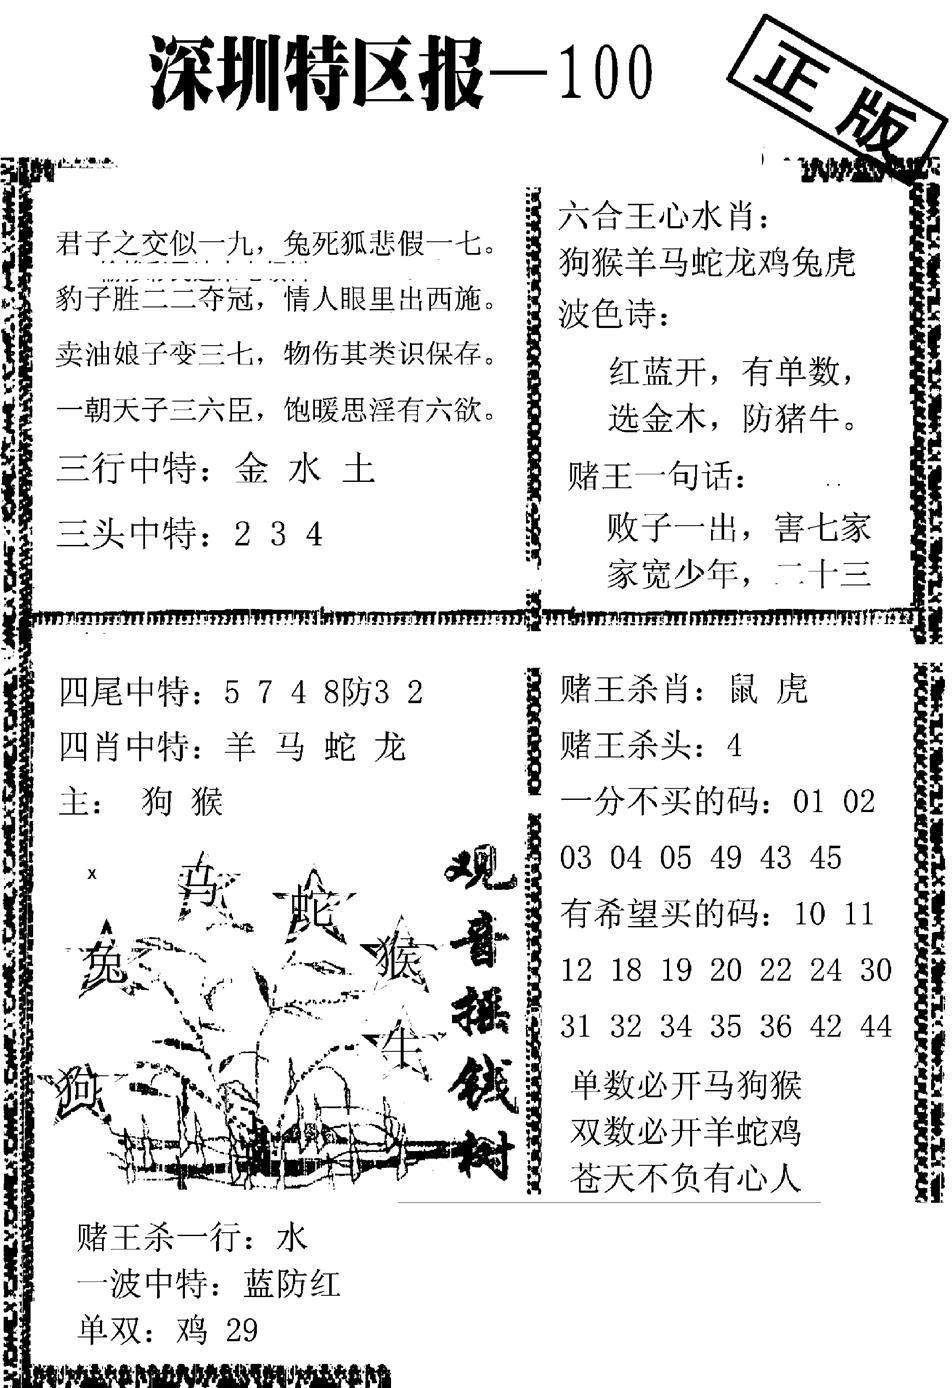 深圳特区报—100
正版
君子之交似一九，兔死狐悲假一七。
豹子胜二二夺冠，情人眼里出西施。
卖油娘子变三七，物伤其类识保存。
一朝天子三六臣，饱暖思淫有六欲。
三行中特：金 水 土
三头中特：2 3 4
六合王心水肖：
狗猴羊马蛇龙鸡兔虎
波色诗：
红蓝开，有单数，
选金木，防猪牛。
赌王一句话：
败子一出，害七家
家宽少年，二十三
四尾中特：5 7 4 8防3 2
四肖中特：羊 马 蛇 龙
主： 狗 猴
x
马
蛇
兔
猴
牛
狗
观音摇钱树
赌王杀一行：水
一波中特：蓝防红
单双：鸡 29
赌王杀肖：鼠 虎
赌王杀头：4
一分不买的码：01 02
03 04 05 49 43 45
有希望买的码：10 11
12 18 19 20 22 24 30
31 32 34 35 36 42 44
单数必开马狗猴
双数必开羊蛇鸡
苍天不负有心人